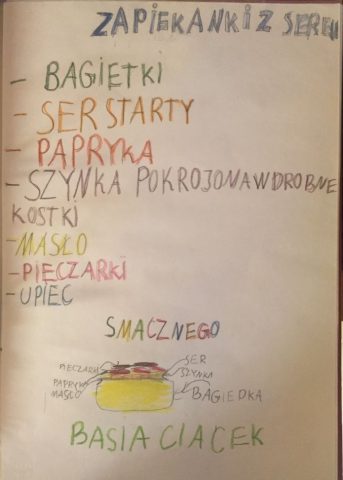 ZAPIEKANKI Z SEREM
- BAGIETKI
- SER STARTY
- PAPRYKA
- SZYNKA POKROJONA W DROBNE
KOSTKI
- MASŁO
- PIECZARKI
- UPIEC
SMACZNEGO
PIECZARKI
SER
SZYNKA
PAPRYKA
MASŁO
BAGIEDKA
BASIA CIACEK